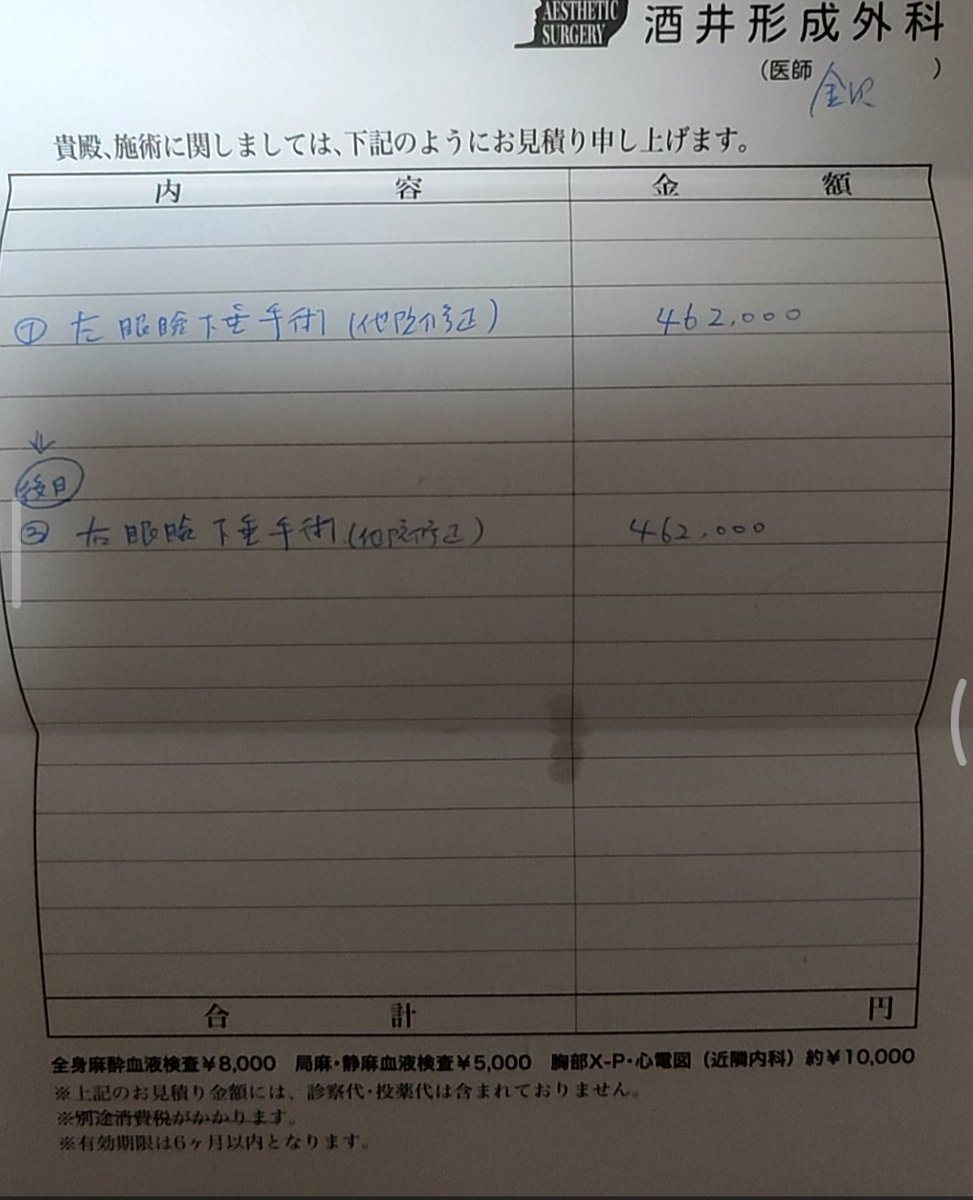 AESTHETIC
SURGERY
酒井形成外科
(医師 金沢 )
貴殿、施術に関しましては、下記のようにお見積り申し上げます。
内 容 金 額
① 左眼瞼下垂手術(他院修正) 462,000
↓
後日
② 右眼瞼下垂手術(他院修正) 462,000
合 計 円
全身麻酔血液検査¥8,000 局麻・静麻血液検査¥5,000 胸部X-P・心電図(近隣内科)約¥10,000
※上記のお見積り金額には、診察代・投薬代は含まれておりません。
※別途消費税がかかります。
※有効期限は6ヶ月以内となります。